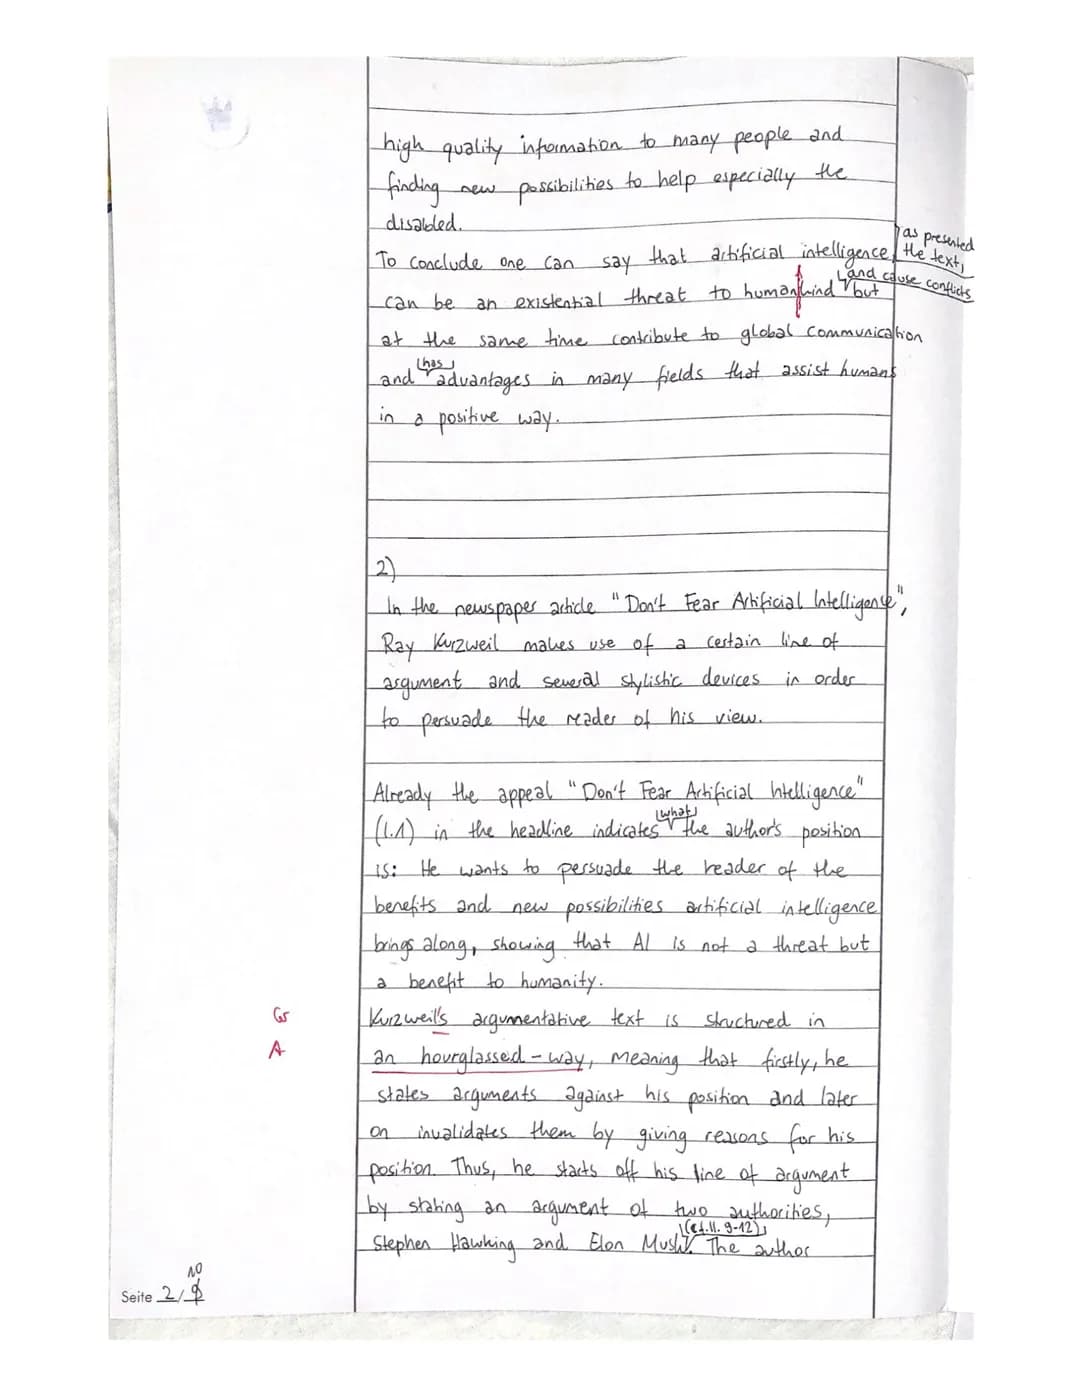 high quality information to many people and
finding new possibilities to help especially the
disabled.
as presented
To conclude one can say that artificial intelligence, the text,
and cause conflicts
can be an existential threat to humankind but
at the same time contribute to global communication
has
and advantages in many fields that assist humans
in a positive way.
2)
In the newspaper article "Don't Fear Artificial Intelligence",
Ray Kurzweil makes use of a certain line of
argument and several stylistic devices in order
to persuade the reader of his view.
Already the appeal "Don't Fear Artificial Intelligence"
what
(l.1) in the headline indicates the author's position
is: He wants to persuade the reader of the
benefits and new possibilities artificial intelligence
brings along, showing that AI is not a threat but
a benefit to humanity.
Gr Kurzweil's argumentative text is structured in
A an hourglassed-way, meaning that firstly, he
states arguments against his position and later
on invalidates them by giving reasons for his
position. Thus, he starts off his line of argument
by stating an argument of two authorities,
(cf.ll. 9-12)
Stephen Hawking and Elon Musk. The author
10
Seite 2/